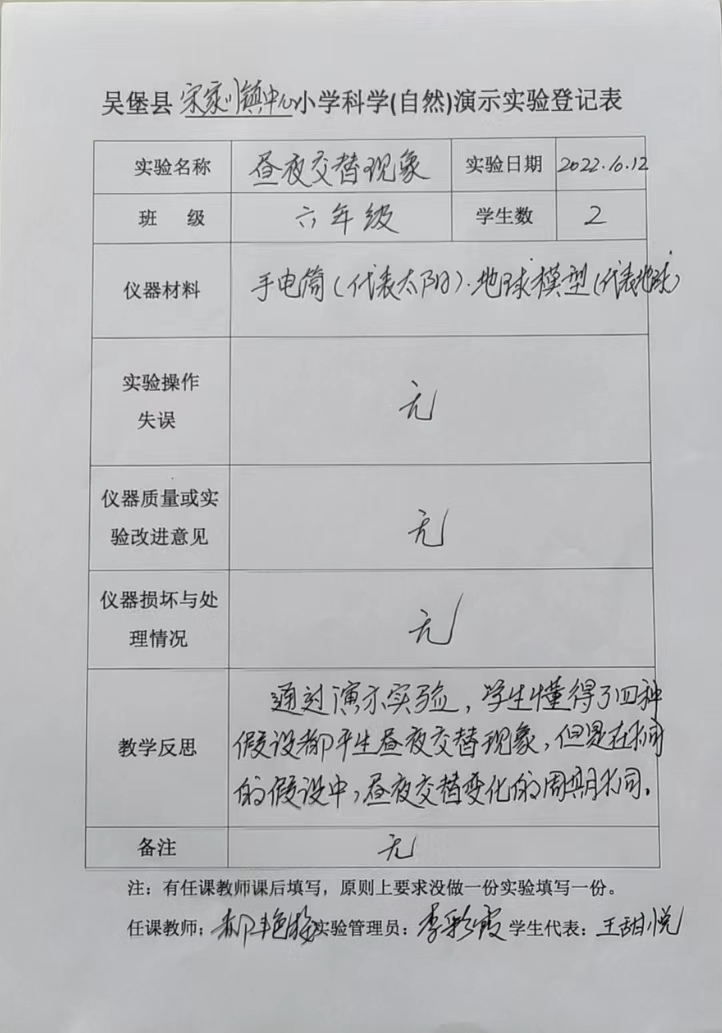 吴堡县 宋家川镇中心小学科学(自然)演示实验登记表
实验名称 昼夜交替现象 实验日期 2022.10.12
班 级 六年级 学生数 2
仪器材料 手电筒(代表太阳)、地球模型(代表地球)
实验操作
失误
无
仪器质量或实
验改进意见
无
仪器损坏与处
理情况
无
教学反思
通过演示实验，学生懂得了四种
假设都产生昼夜交替现象，但是在不同
的假设中，昼夜交替变化的周期不同。
备注 无
注：有任课教师课后填写，原则上要求没做一份实验填写一份。
任课教师：郝艳梅 实验管理员：李彩霞 学生代表：王甜悦